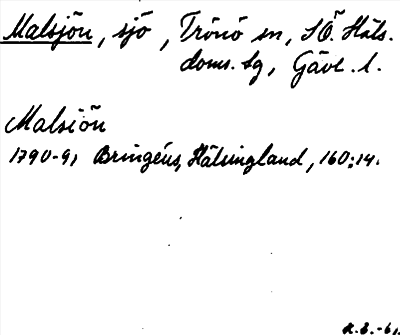 Malsjön, sjö, Trönö sn, SÖ. Häls.
doms. sg, Gävl. l.
Malsiön
1790-91 Bringéus, Hälsingland, 160:14.
K.E.-61.